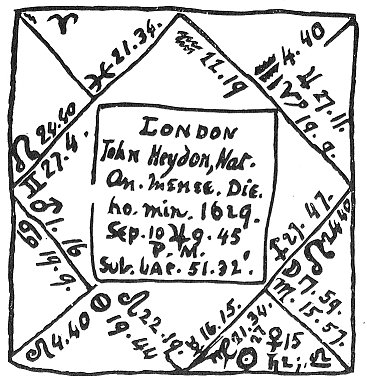 ♈
♓ 21.34.
♒ 22.19
4.40
♃ 27.11.
♑ 19.9.
☊ 24.40
♊ 27.4.
LONDON
John Heydon, Nat.
An. mense. Die.
ho. min. 1629.
Sep. 10 ♃ 9. 45
P. M.
Sub. LAP. 51.32'
♂ 1.16
♋ 19.9.
♐ 27.47.
☋ 24.40
17.59.
♏ 15.57.
♌ 4.40
19.44
♌ 22.19.
☿ 16.15.
♍ 21.34.
27
☉
♀ 15
♄ 2; ♎